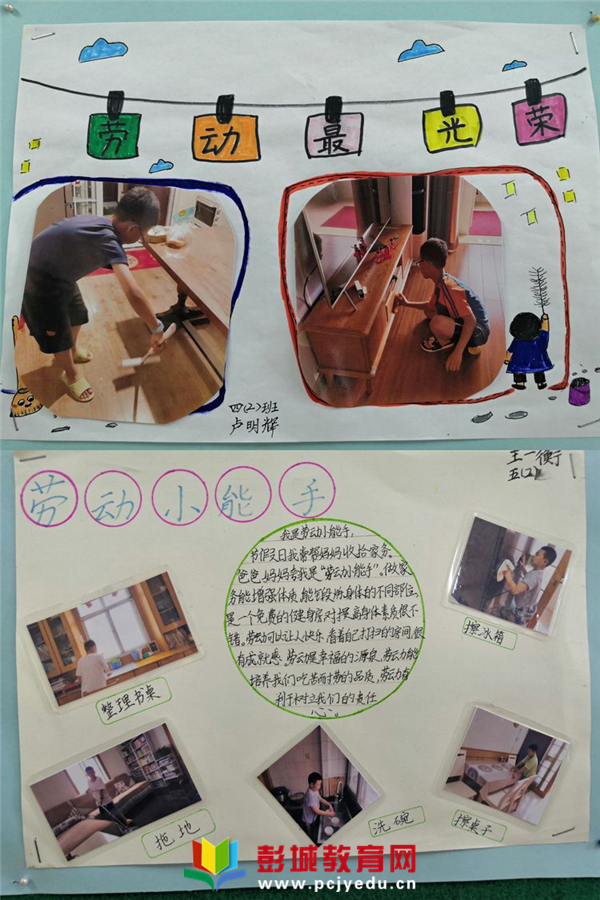 劳动最光荣
四(2)班
卢明辉
劳动小能手
王一衡
五(2)
我是劳动小能手,
节假日我常帮妈妈收拾家务。
爸爸,妈妈夸我是“劳动小能手”。做家
务能增强体质,能锻炼身体的不同部位,
是一个免费的健身房对提高身体素质很不
错。劳动可以让人快乐,看着自己打扫的房间,很
有成就感,劳动是幸福的源泉,劳动能
培养我们吃苦耐劳的品质,劳动有
利于树立我们的责任
心。
擦冰箱
整理书桌
拖地
洗碗
擦桌子
彭城教育网
www.pcjyedu.cn